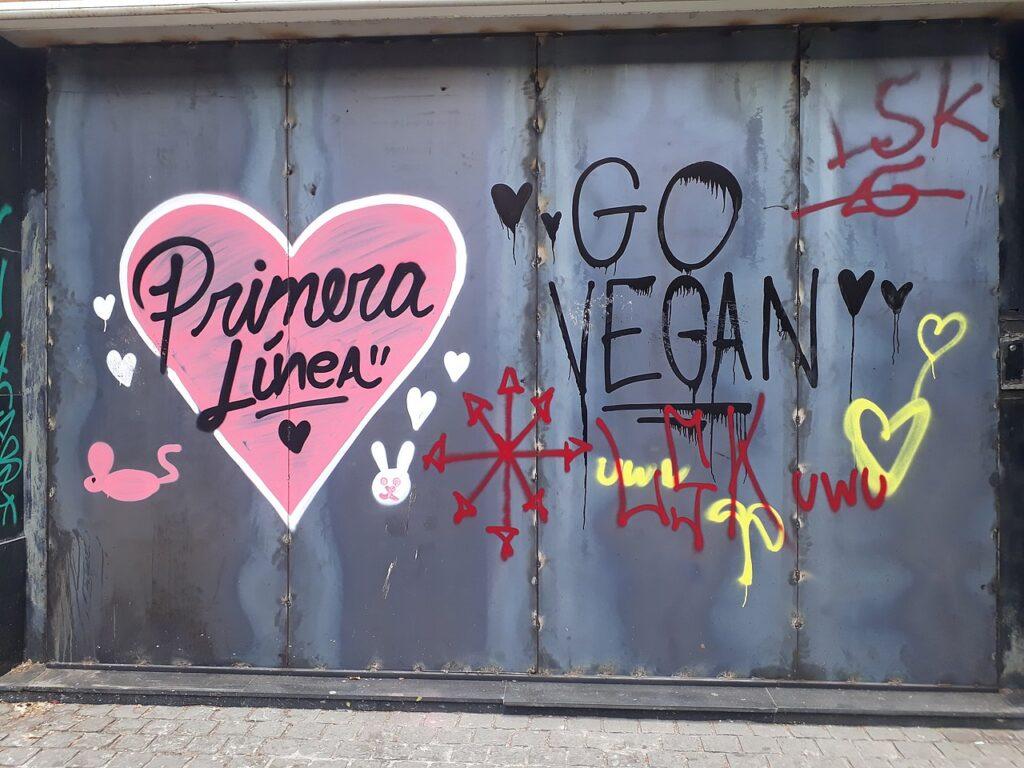 Primera
Línea"
GO
VEGAN
LSK
uwu
LSK
uwu